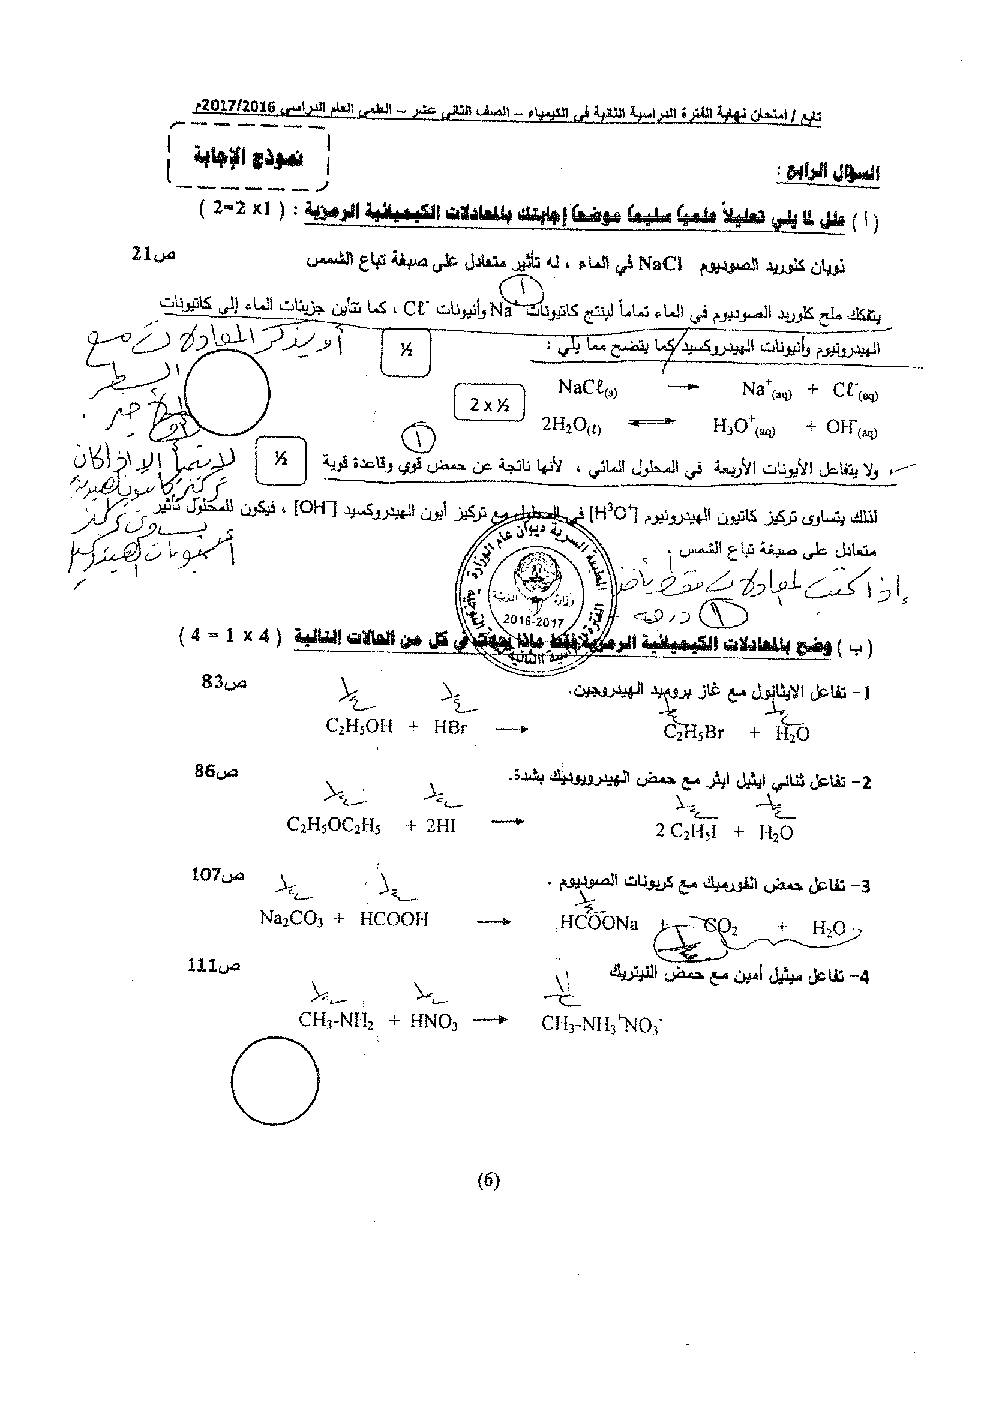 تابع / امتحان نهاية الفترة الدراسية الثانية في الكيمياء – الصف الثاني عشر – العلمي العام الدراسي 2017/2016م
نموذج الإجابة
السؤال الرابع :
( أ ) علل لما يلي تعليلاً علمياً سليماً موضحاً إجابتك بالمعادلات الكيميائية الرمزية : ( 1× 2=2 )
ذوبان كلوريد الصوديوم NaCl في الماء ، له تأثير متعادل على صبغة تباع الشمس ص21
يتفكك ملح كلوريد الصوديوم في الماء تماماً لينتج كاتيونات Na⁺ وأنيونات Cℓ⁻ ، كما تتأين جزيئات الماء إلى كاتيونات
الهيدرونيوم وأنيونات الهيدروكسيد كما يتضح مما يلي :
½
أو يذكر المعادلات مع
السطر
الأخير .
NaCℓ(s) → Na⁺(aq) + Cℓ⁻(aq)
2 x ½
2H₂O(ℓ) ⇌ H₃O⁺(aq) + OH⁻(aq)
، ولا يتفاعل الأيونات الأربعة في المحلول المائي ، لأنها ناتجة عن حمض قوي وقاعدة قوية
½
لذلك يتساوى تركيز كاتيون الهيدرونيوم [H³O⁺] في المحلول مع تركيز أيون الهيدروكسيد [OH⁻] ، فيكون للمحلول تأثير
متعادل على صبغة تباع الشمس .
إذا كتب المعادلات فقط يأخذ
١ درجة
المطبعة السرية ديوان عام الوزارة
2016-2017
( ب ) وضح بالمعادلات الكيميائية الرمزية فقط ماذا يحدث في كل من الحالات التالية ( 4 × 1 = 4 )
1- تفاعل الايثانول مع غاز بروميد الهيدروجين. ص83
C₂H₅OH + HBr → C₂H₅Br + H₂O
2- تفاعل ثنائي ايثيل ايثر مع حمض الهيدرويوديك بشدة. ص86
C₂H₅OC₂H₅ + 2HI → 2 C₂H₅I + H₂O
3- تفاعل حمض الفورميك مع كربونات الصوديوم . ص107
Na₂CO₃ + HCOOH → HCOONa + CO₂ + H₂O
4- تفاعل ميثيل أمين مع حمض النيتريك ص111
CH₃-NH₂ + HNO₃ → CH₃-NH₃⁺NO₃⁻
(6)